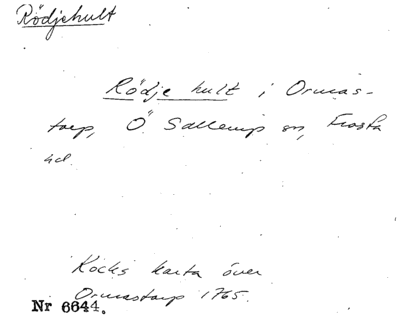 Rödjehult
Rödje hult i Ormas-
torp, Ö. Sallerup sn, Frosta
hd.
Kocks karta över
Ormastorp 1765.
Nr 6644.